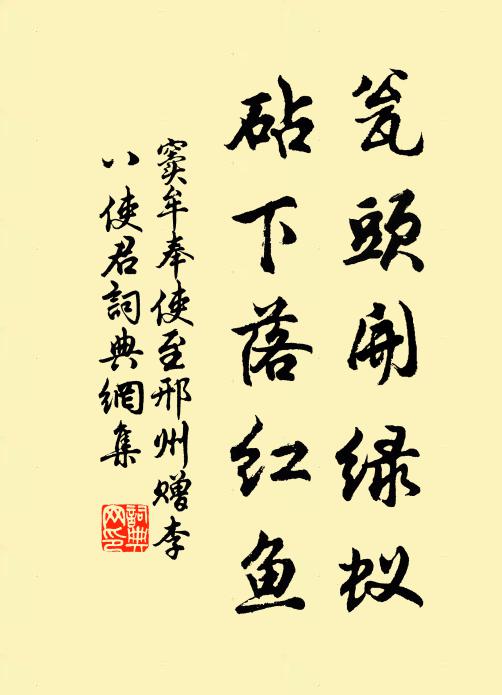 瓮頭開绿蚁
砧下落红鱼
窦牟奉使至邢州赠李
八使君詞典網集
詞典网印